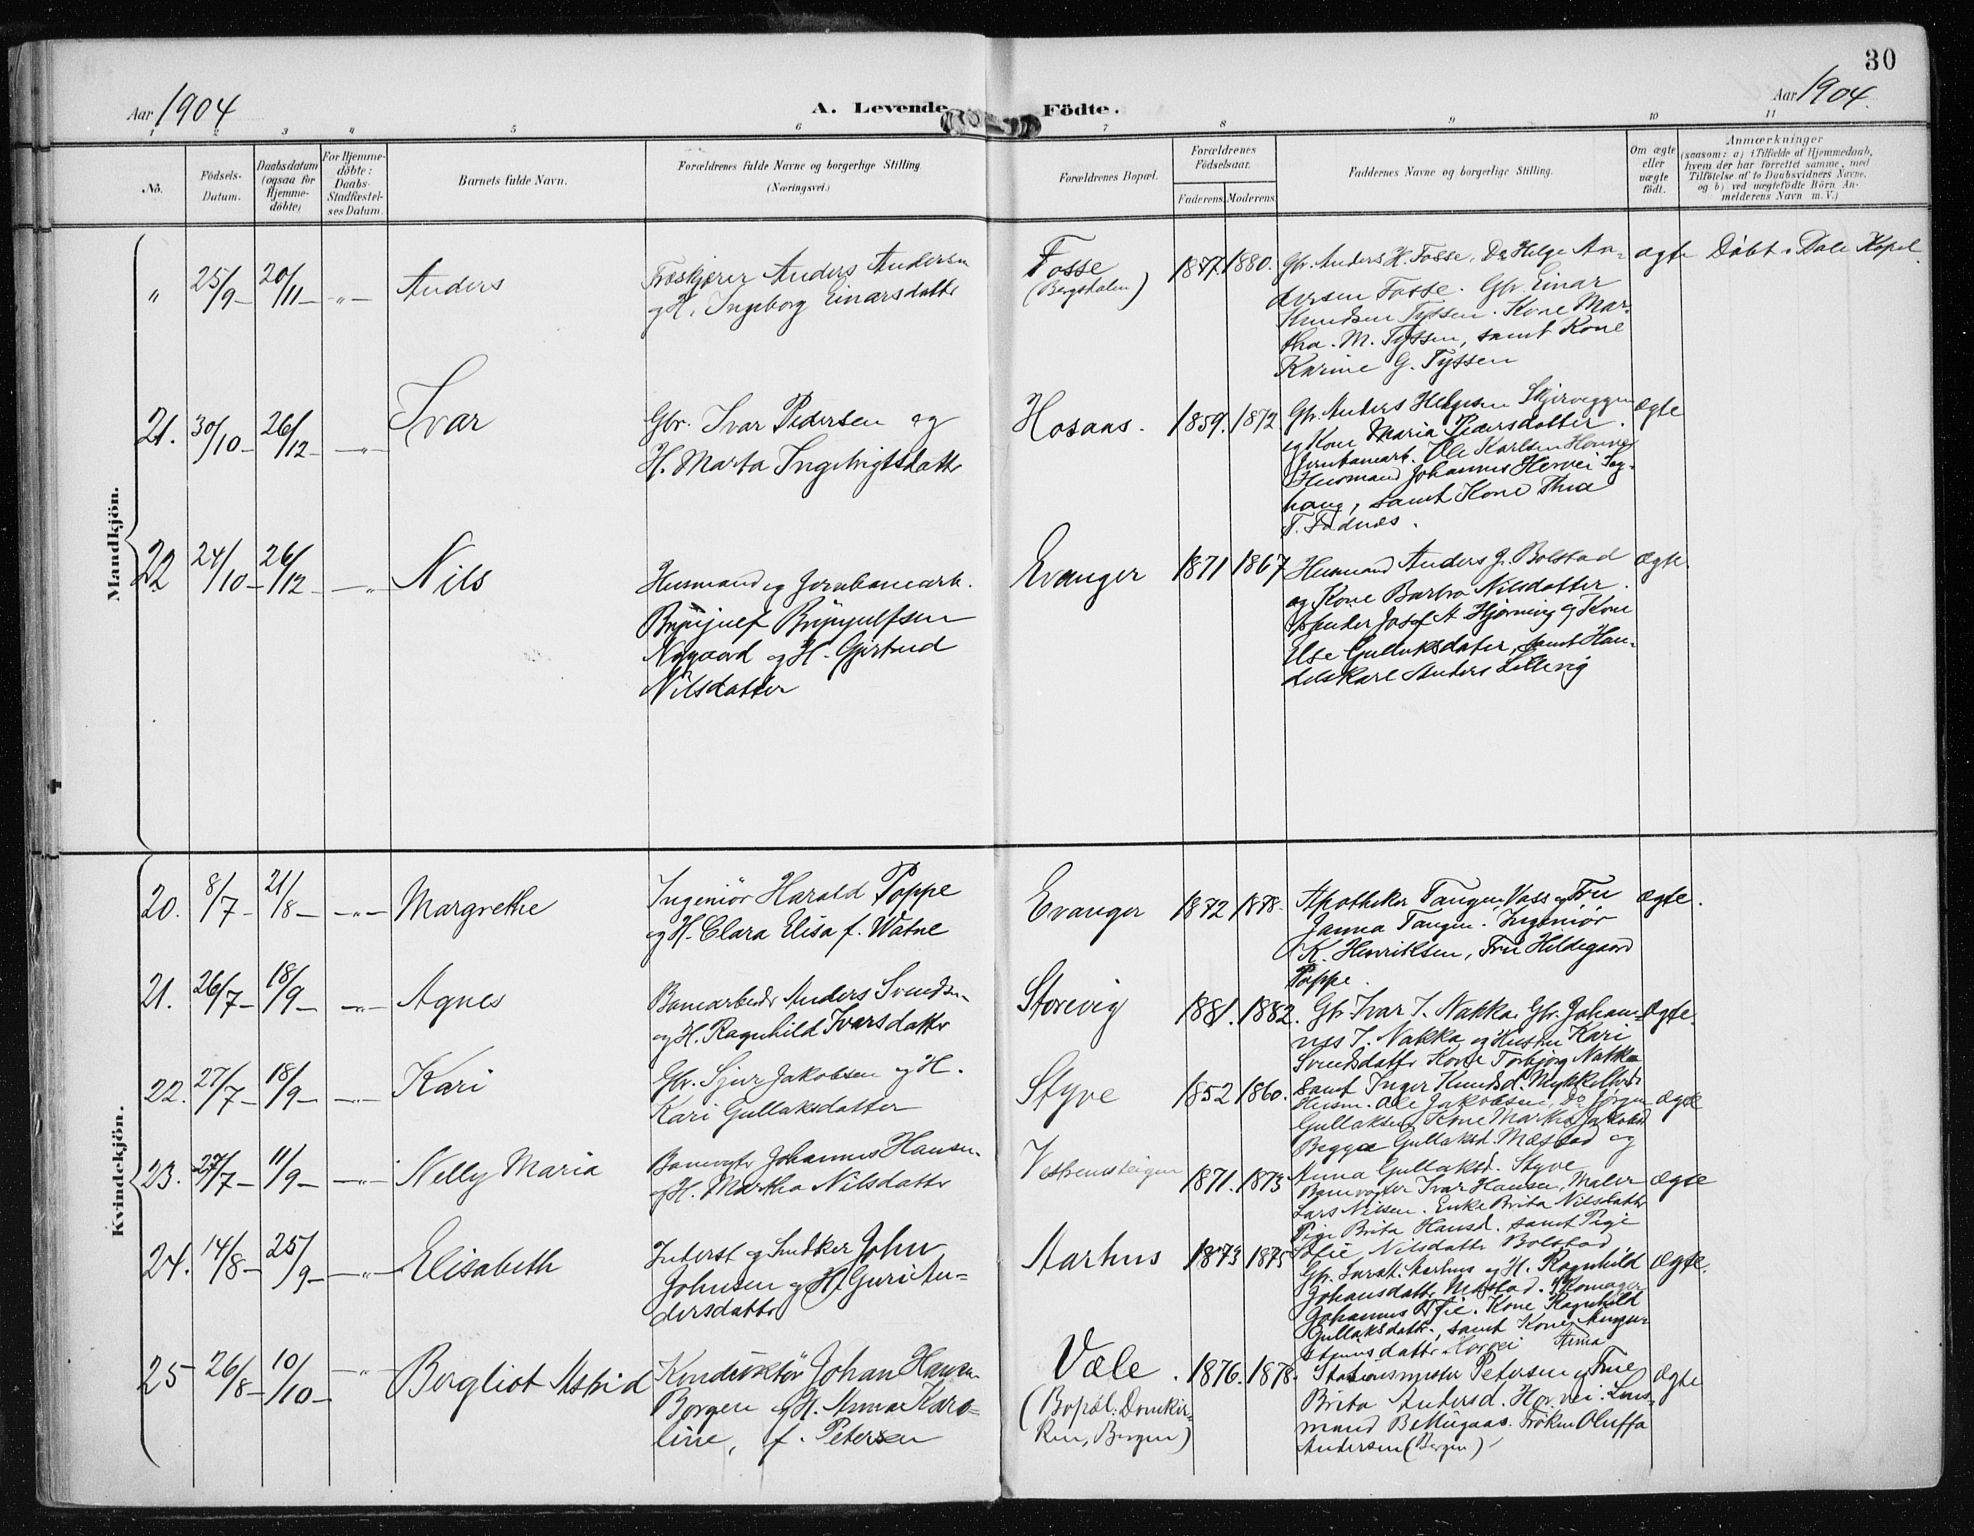 30
Aar 1904
A. Levende Födte.
Aar 1904.
1 2 3 4 5 6 7 8 9 10 11
No.
Födsels-Datum.
Daabsdatum (ogsaa for Hjemme-döbte)
For Hjemme-döbte: Daabs-Stadfæstel-ses Datum.
Barnets fulde Navn.
Forældrenes fulde Navne og borgerlige Stilling.
(Næringsvei.)
Forældrenes Bopæl.
Forældrenes Födselsaar.
Faderens. Moderens.
Faddernes Navne og borgerlige Stilling.
Om ægte eller uægte födt.
Anmærkninger
(saasom: a) i Tilfælde af Hjemmedaab,
hvem der har forrettet samme, med
Tilföielse af to Daabsvidners Navne,
og b) ved uægtefödte Börn An-
melderens Navn m. V.)
Mandkjön.
" 25/9 20/11 Anders
Anders Andersen
og H. Ingeborg Einarsdatter
Fosse
(Bergsdalen)
1877. 1880.
Gbr. Anders H. Fosse, Do Helge An-
dersen Fosse. Gbr. Einar
Knudsen Tyssen. Kone Mar-
tha. M. Tyssen, samt Kone
Karine G. Tyssen
ægte
Döbt i Dale Kapel
21. 30/10 26/12 Ivar
Gbr. Ivar Pedersen og
H. Marta Ingebrigtsdatter
Hosaas.
1859. 1872
Gbr. Anders Helgesen
og Kone Maria Pedersdatter.
Jernbanearb. Ole Karlsen
Husmand Johannes Horvei
haug, samt Kone Thea
T. Fadnes.
ægte
22 24/10 26/12 Nils
Husmand og Jernbanearb.
Brynjulf Brynjulfsen
Nygaard og H. Gjertrud
Nilsdatter
Evanger
1871 1867
Husmand Anders J. Bolstad
og Kone Barbro Nilsdatter.
Josef A Hjørnevig og Kone
Else Gullaksdatter, samt Han-
delskarl Anders Lillevig
ægte.
Kvindekjön.
20. 8/7 21/8 Margrethe
Ingeniör Harald Poppe
og H. Clara Elisa f. Watne
Evanger
1872 1878.
Apotheker Tangen Voss og Fru
Janna Tangen. Ingeniör
K. Henriksen, Fru Hildegaard
Poppe.
ægte.
21. 26/7 18/9 Agnes
Banearbeider Anders Svendsen
og H. Ragnhild Ivarsdatter
Storevig
1881. 1882.
Gbr Ivar I. Nakka. Gbr. Johan-
nes I. Nakka og Hustru Kari
Svendsdatter Kone Torbjørg Nakka
samt Inger Knudsd.
Ægte.
22. 27/7 18/9 Kari
Gbr. Sjur Jakobsen og H.
Kari Gullaksdatter
Styve
1852 1860.
Husm. Ole Jakobsen, Do Jörgen
Gullaksen, Kone Martha
Begga Gullaksd. Mæstad og
Anna Gullaksd. Styve
ægte
23. 27/7 11/9 Nelly Maria
Banevogter Johannes Hansen
og H. Martha Nilsdatter
1871. 1873
Banevogter Ivar Hansen, Maler
Lars Nilsen. Enke Brita Nilsdatter
Pige Brita Hansd. samt Pige
Sofie Nilsdatter Bolstad
Ægte
24. 14/8 25/9 Elisabeth
Inderst og Snedker John
Johnsen og H. Guri An-
dersdatter
Aarhus
1873 1875
Gbr. Lars A. Aarhus og H. Ragnhild
Johansdatter Mæstad.
Johannes Kone Ragnhild
Gullaksdatter, samt Kone
Horvei
Ægte.
25 26/8 10/10 Bergliot Astrid
Konduktör Johan Hansen
Borgen og H. Anna Karo-
line, f. Petersen
Væle.
(Bopæl: Domkir-
ken, Bergen)
1876. 1878.
Stationsmester Petersen og Frue
Brita Andersd. Horvei. Lens-
mand Fröken Oluffa
Andersen (Bergen)
Ægte